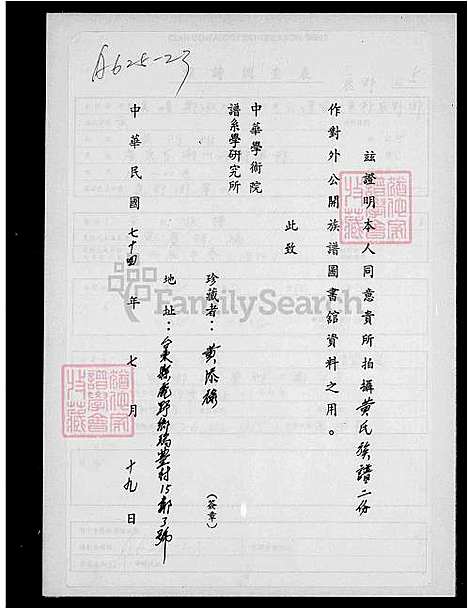 A625-23
茲證明本人同意貴所拍攝黃氏族譜二份
作對外公開族譜圖書館資料之用。
此致
中華學術院
譜系學研究所
珍藏者：黃添祿
(簽章)
地址：台東縣鹿野鄉瑞豐村15鄰3號
中華民國七十四年七月十九日
FamilySearch